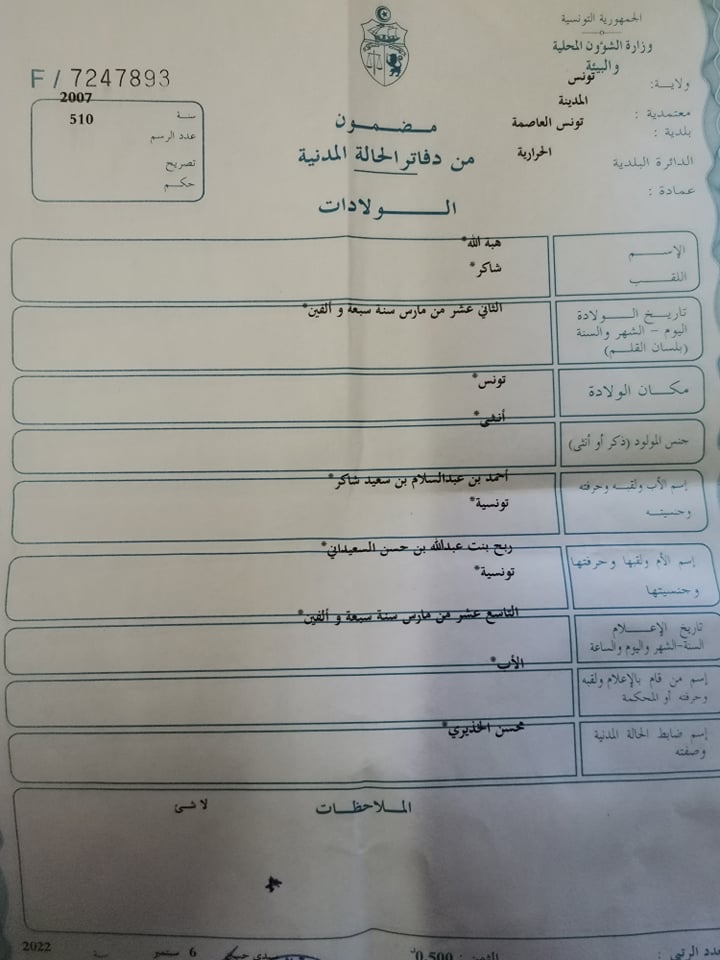 الجمهورية التونسية
وزارة الشؤون المحلية
والبيئة
ولاية: تونس
معتمدية : المدينة
بلدية : تونس العاصمة
الدائرة البلدية الحرارية
عمادة :
F / 7247893
سنة 2007
عدد الرسم 510
تصريح
حكم
مضمون
من دفاتر الحالة المدنية
الولادات
الإسم هبة الله*
اللقب شاكر*
تاريخ الولادة الثاني عشر من مارس سنة سبعة و ألفين*
اليوم - الشهر والسنة
(بلسان القلم)
مكان الولادة تونس*
جنس المولود (ذكر أو أنثى) أنثى*
إسم الأب ولقبه وحرفته أحمد بن عبدالسلام بن سعيد شاكر*
وجنسيته تونسية*
إسم الأم ولقبها وحرفتها ربح بنت عبدالله بن حسن السعيداني*
وجنسيتها تونسية*
تاريخ الإعلام التاسع عشر من مارس سنة سبعة و ألفين*
السنة-الشهر واليوم والساعة
إسم من قام بالإعلام ولقبه الأب*
وحرفته أو المحكمة
إسم ضابط الحالة المدنية محسن الخذيري*
وصفته
الملاحظات
لا شئ
عدد الرتبي : الثمن : 0,500د 6 سبتمبر سنة 2022